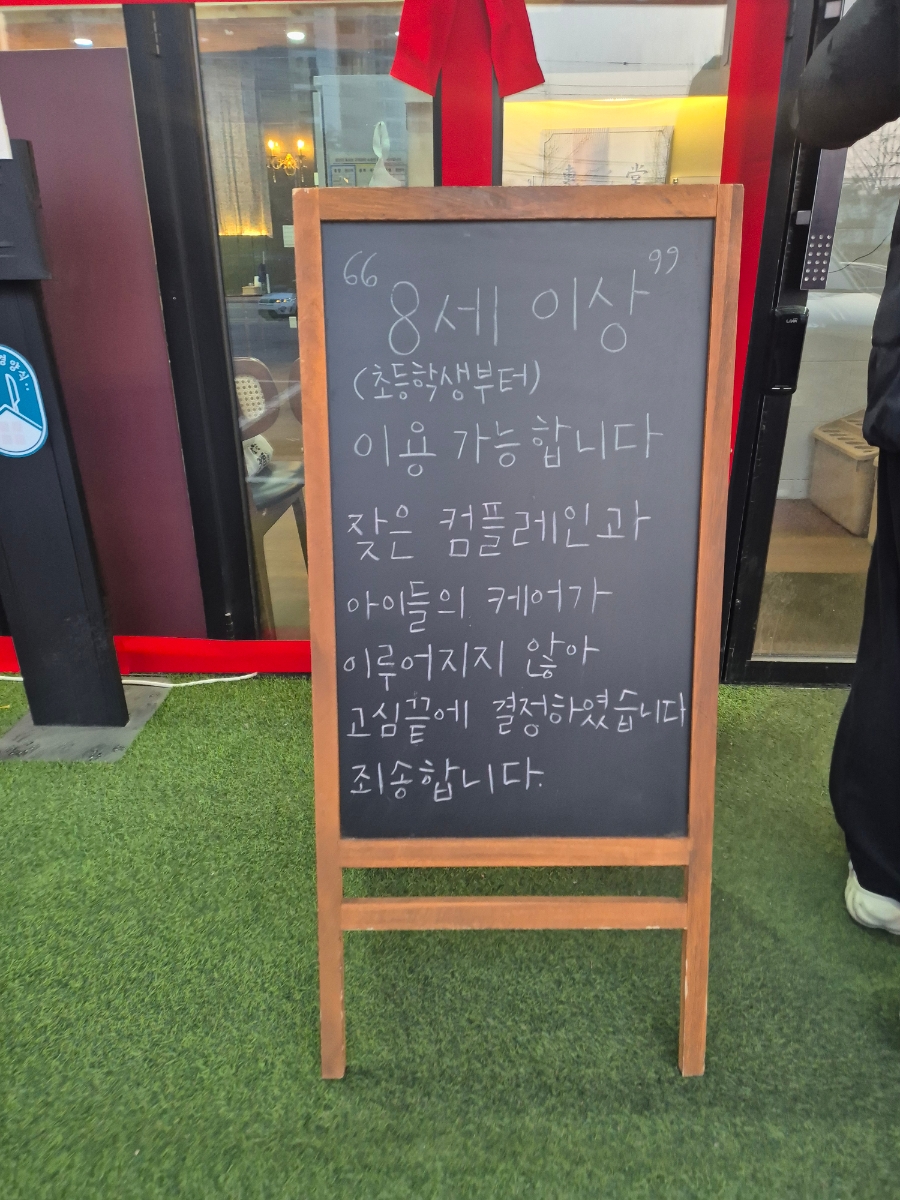 "8세 이상"
(초등학생부터)
이용 가능합니다
잦은 컴플레인과
아이들의 케어가
이루어지지 않아
고심끝에 결정하였습니다
죄송합니다.
堂